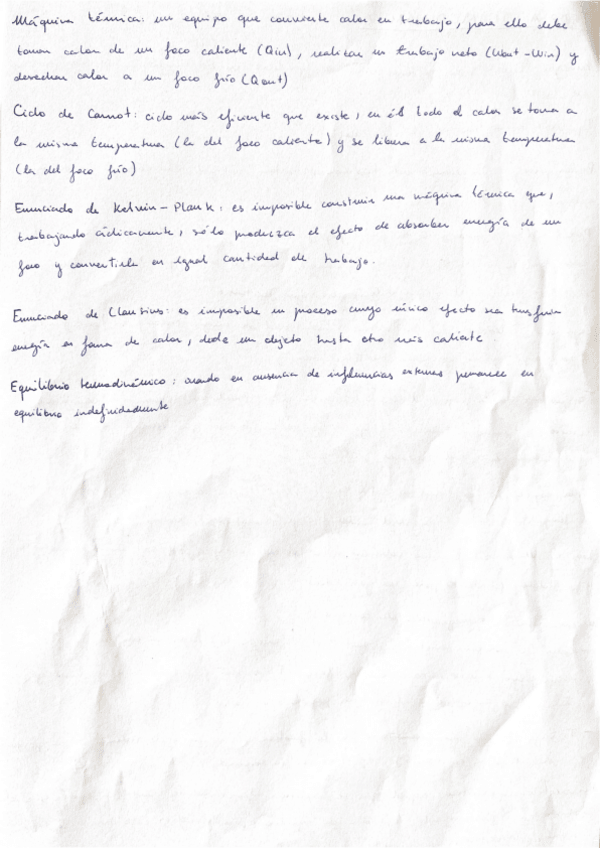 Máquina térmica: un equipo que convierte calor en trabajo, para ello debe
tomar calor de un foco caliente (Qin), realizar un trabajo neto (Wout-Win) y
desechar calor a un foco frío (Qout)
Ciclo de Carnot: ciclo más eficiente que existe, en él todo el calor se toma a
la misma temperatura (la del foco caliente) y se libera a la misma temperatura
(la del foco frío)
Enunciado de Kelvin-Plank: es imposible construir una máquina térmica que,
trabajando cíclicamente, sólo produzca el efecto de absorber energía de un
foco y convertirla en igual cantidad de trabajo.
Enunciado de Clausius: es imposible un proceso cuyo único efecto sea transferir
energía en forma de calor, desde un objeto hasta otro más caliente
Equilibrio termodinámico: cuando en ausencia de influencias externas permanece en
equilibrio indefinidamente